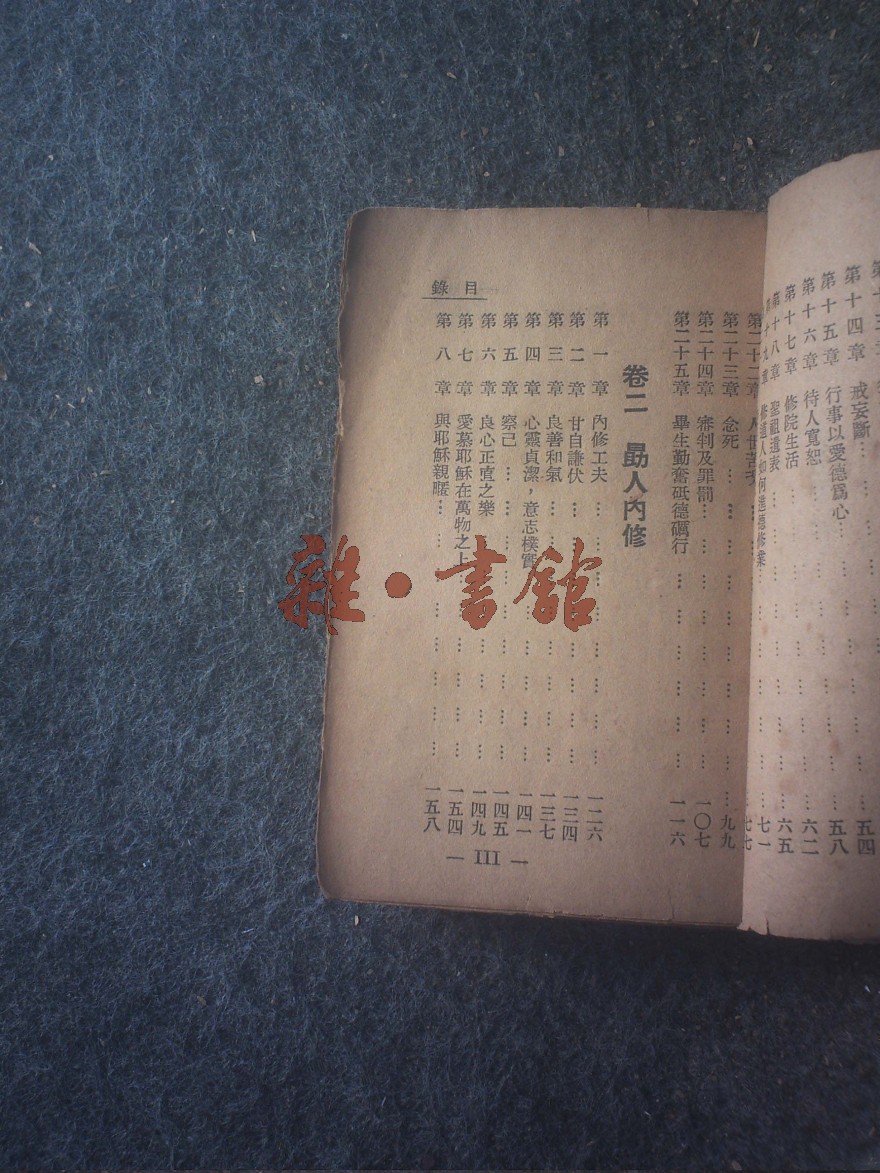 第十四章 戒妄斷 … 五四
第十五章 行事以愛德爲心 … 五八
第十六章 待人寬恕 … 六二
第十七章 修院生活 … 六五
第十八章 聖祖遺表 … 七一
修道人如何進德修業 … 七七
第二十二章 人世苦
第二十三章 念死 … 九九
第二十四章 審判及罪罰 … 一〇七
第二十五章 畢生勤奮砥德礪行 … 一一六
卷二 勗人內修
第一章 內修工夫 … 一二六
第二章 甘自謙伏 … 一三四
第三章 良善和氣 … 一三七
第四章 心靈貞潔，意志樸實 … 一四一
第五章 察己 … 一四五
第六章 良心正直之樂 … 一四九
第七章 愛慕耶穌在萬物之上 … 一五四
第八章 與耶穌親暱 … 一五八
目錄
— III —
雜·書館